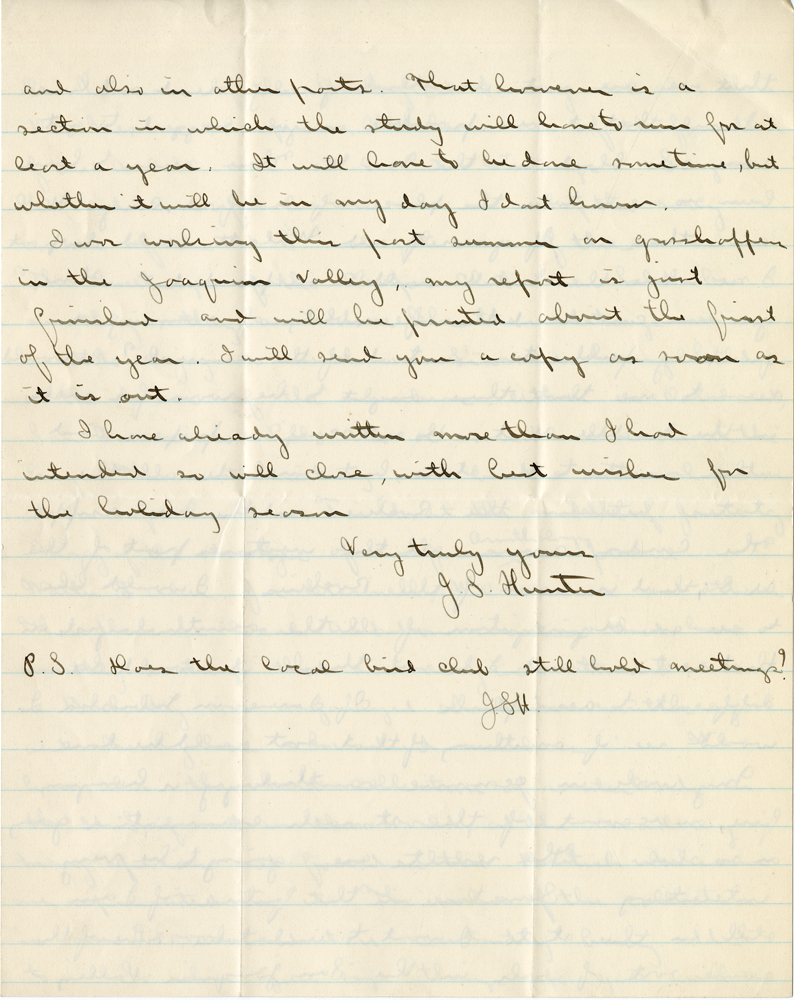 and also in other parts. That however is a
section in which the study will have to run for at
least a year. It will have to be done sometime, but
whether it will be in my day I dont know.
I was working this past summer on grasshoppers
in the Joaquin Valley, my report is just
finished and will be printed about the first
of the year. I will send you a copy as soon as
it is out.
I have already written more than I had
intended so will close, with best wishes for
the holiday season
Very truly yours
J. S. Hunter
P.S. Does the local bird club still hold meetings?
JSH.